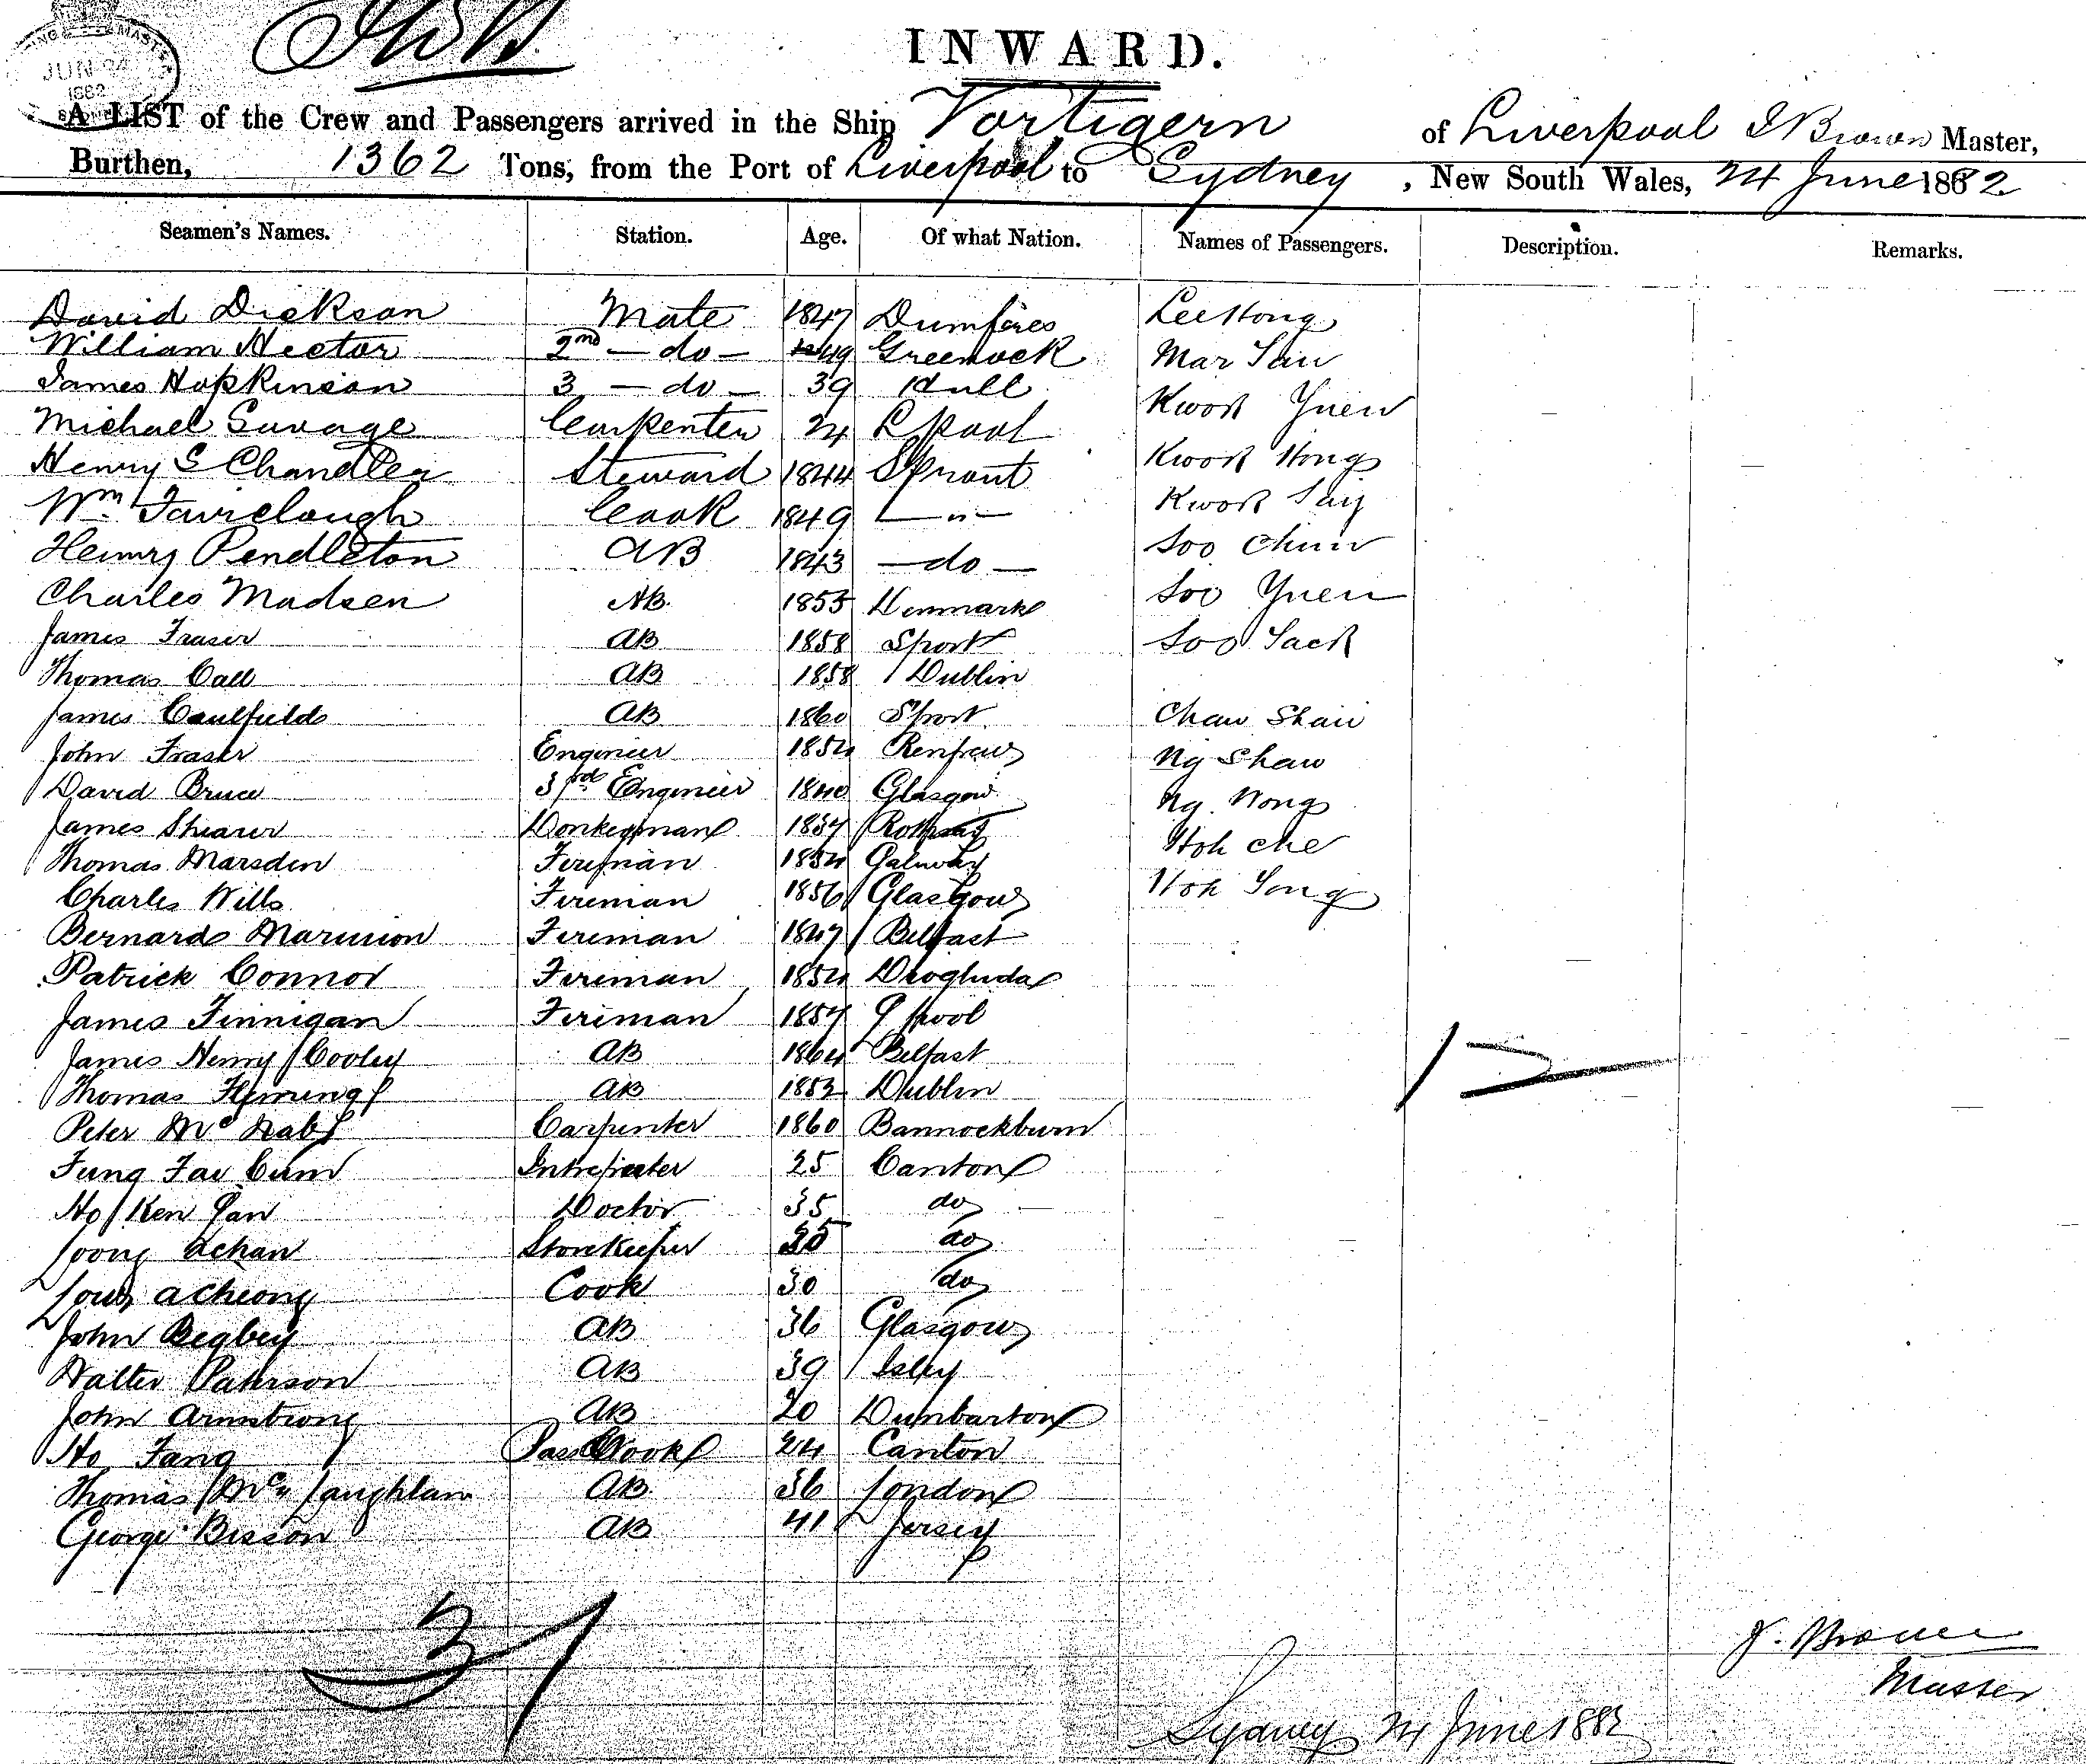 JUN 24
1882
INWARD.
A LIST of the Crew and Passengers arrived in the Ship Vortigern of Liverpool J Brown Master,
Burthen, 1362 Tons, from the Port of Liverpool to Sydney, New South Wales, 24 June 1882
Seamen's Names. Station. Age. Of what Nation. Names of Passengers. Description. Remarks.
David Dickson Mate 1847 Dumfries Lee Hong
William Hector 2nd - do - 49 Greenock Mar
James Hopkinson 3 - do - 39 Hull Kwok Yuen
Michael Savage Carpenter 24 Lpool Kwok Hong
Henry S Chandler Steward 1844 Kwok
Wm Fairclough Cook 1849 - " - Soo Chun
Henry Pendleton AB 1843 - do - Soo Yuen
Charles Madsen AB. 1853 Denmark Soo
James Fraser AB 1858 Sport
Thomas Call AB 1858 Dublin
James Caulfield AB 1860 Sport Chaw Shaw
John Fraser Engineer 1854 Renfrew Ng Shaw
David Bruce 3rd Engineer 1840 Glasgow Ng. Wong
James Shearer Donkeyman 1837 Rothsay Hoh Che
Thomas Marsden Fireman 1854 Galway Hoh
Charles Wills Fireman 1856 Glasgow
Bernard Marmion Fireman 1847 Belfast
Patrick Connor Fireman 1854 Drogheda
James Finnigan Fireman 1857 Lpool
James Henry Cooley AB 1864 Belfast 13
Thomas Fleming AB 1852 Dublin
Peter McNab Carpenter 1860 Bannockburn
Fung Fav Cum Intrepreter 25 Canton
Ho Ken Doctor 35 do
Loong Achan Storekeeper do
Louy Acheong Cook 30 do
John Begbey AB 36 Glasgow
Walter Paterson AB 39 Isley
John Armstrong AB 20 Dunbarton
Ho Fang Pass Cook 24 Canton
Thomas McLaughlan AB 36 London
George Bisson AB 41 Jersey
J. Brown
Master
Sydney 24 June 1882